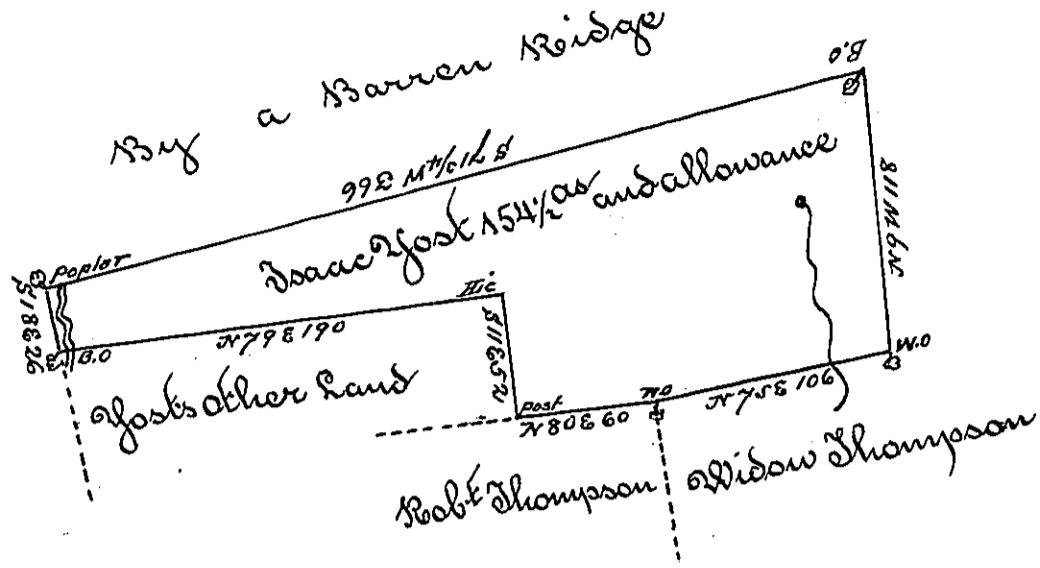 By a Barren Ridge
B.O
S 71 3/4 W 366
Isaac Yost 154 1/2 as and allowance
N 9 W 118
Poplar
S 18 E 26
B.O
N 79 E 190
Hic
S 11 E 52
Yosts other Land
Post
N 80 E 60
W.O
N 75 E 106
W.O
Robt Thompson
Widow Thompson